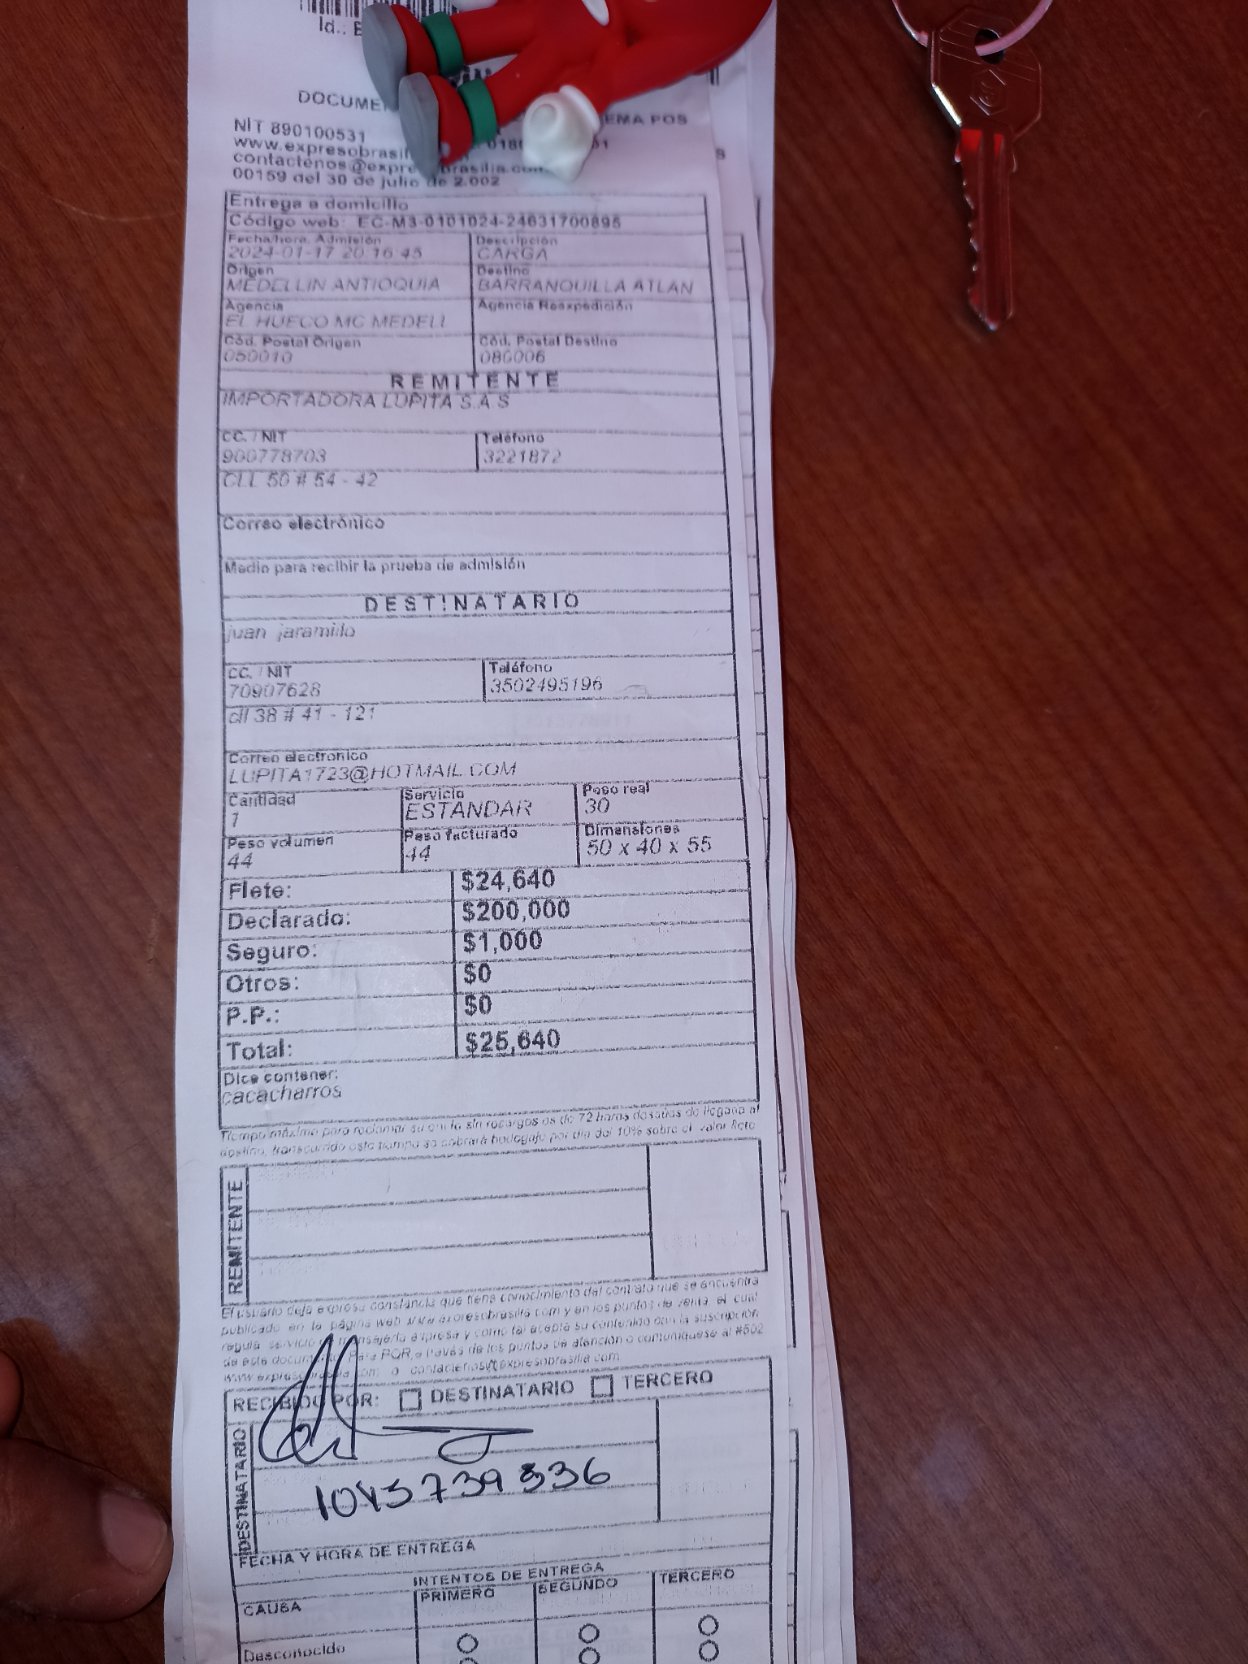 Id.. E
DOCUME EMA POS
NIT 890100531
www.expresobrasil
contactenos@expre brasilia.com
00159 del 30 de julio de 2.002
Entrega a domicilio
Código web: EC-M3-0101024-24631700895
Fecha/hora Admisión Descripción
2024-01-17 20 16 45 CARGA
Origen Destino
MEDELLIN ANTIOQUIA BARRANQUILLA ATLAN
Agencia Agencia Reexpedición
EL HUECO MC MEDELL
Cód. Postal Origen Cód. Postal Destino
050010 080006
REMITENTE
IMPORTADORA LUPITA S.A S
CC. / NIT Teléfono
900778703 3221872
CLL 50 # 54 - 42
Correo electrónico
Medio para recibir la prueba de admisión
DESTINATARIO
juan jaramillo
CC. / NIT Teléfono
70907628 3502495196
cll 38 # 41 - 121
Correo electronico
LUPITA1723@HOTMAIL.COM
Cantidad Servicio Peso real
1 ESTANDAR 30
Peso volumen Peso facturado Dimensiones
44 44 50 x 40 x 55
Flete: $24,640
Declarado: $200,000
Seguro: $1,000
Otros: $0
P.P.: $0
Total: $25,640
Dice contener:
cacacharros
Tiempo máximo para reclamar su sin recargos es de 72 horas después de llegada al
destino, transcurrido este tiempo se cobrará bodegaje por día del 10% sobre el valor flete
REMITENTE
El usuario deja expresa constancia que tiene conocimiento del contrato que se encuentra
publicado en la página web www.expresobrasilia.com y en los puntos de venta, el cual
regula servicio mensajería expresa y como tal acepta su contenido con la suscripción
de este documento Para PQR, a través de los puntos de atención o comuníquese al #502
com o contactenos@expresobrasilia.com
RECIBIDO POR: DESTINATARIO TERCERO
DESTINATARIO
1045739336
FECHA Y HORA DE ENTREGA
INTENTOS DE ENTREGA
CAUSA PRIMERO SEGUNDO TERCERO
Desconocido